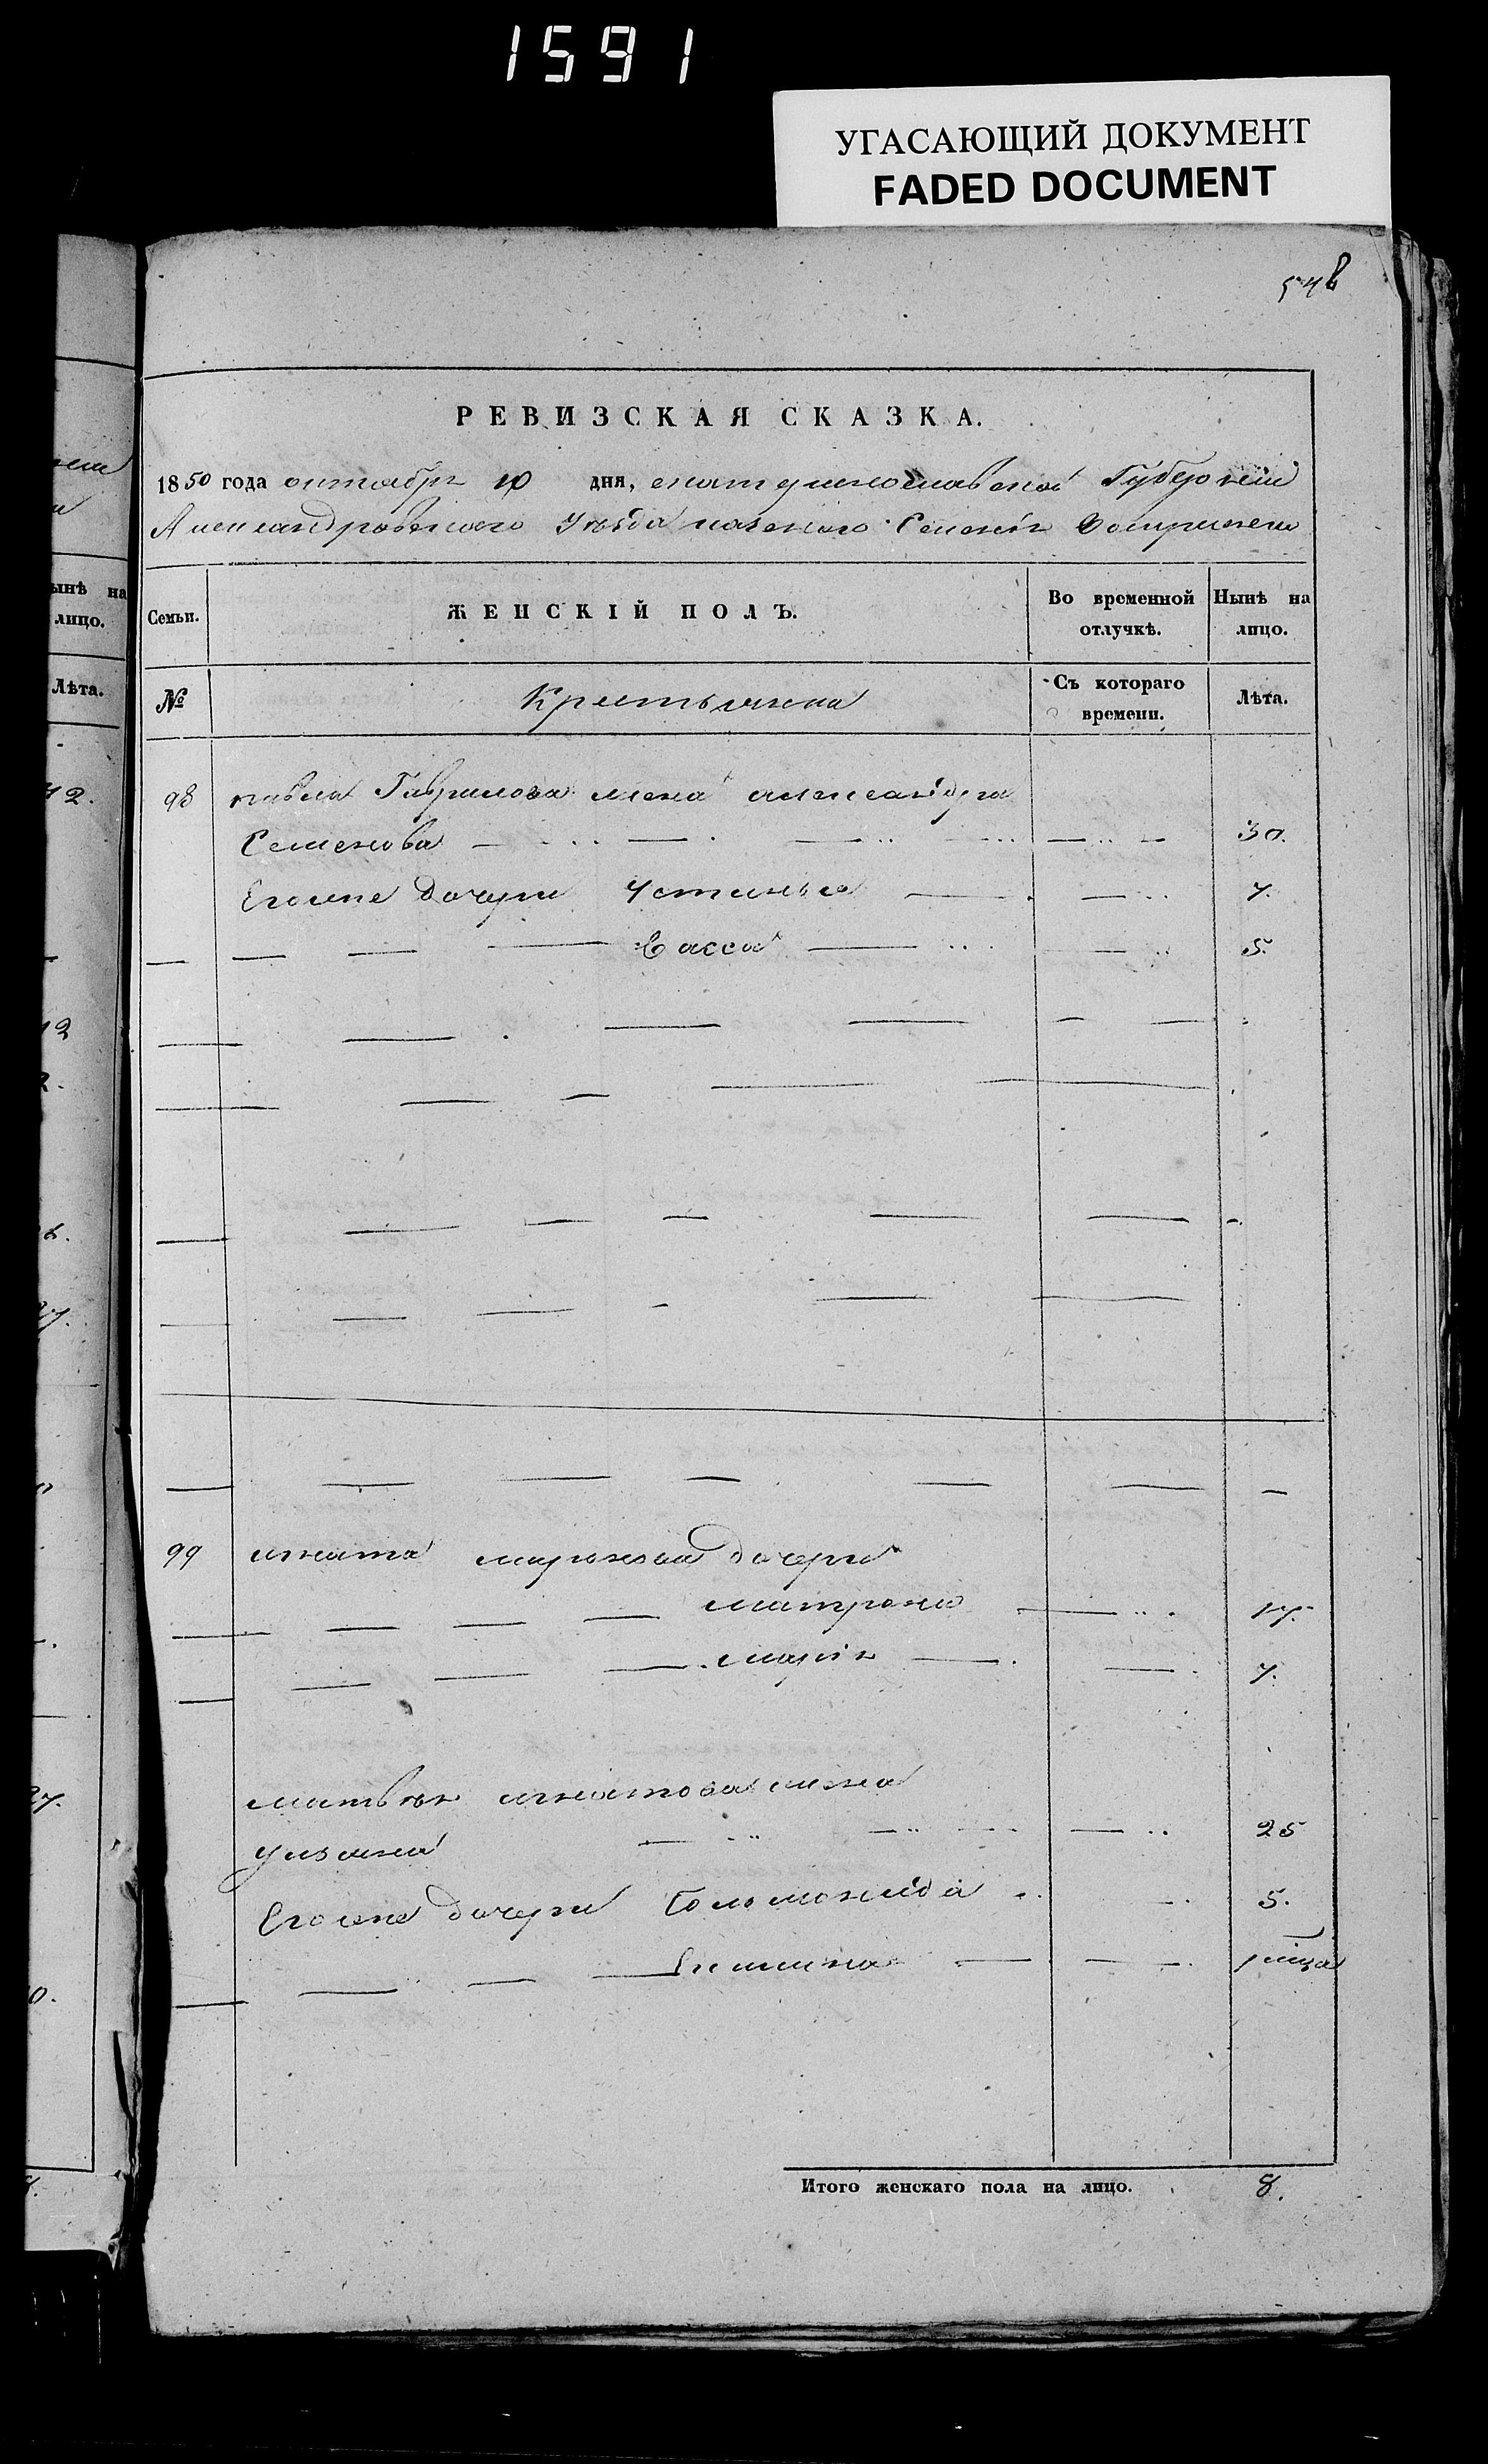 1591
УГАСАЮЩИЙ ДОКУМЕНТ
FADED DOCUMENT
РЕВИЗСКАЯ СКАЗКА.
1850 года октября 10 дня, екатеринославской Губернии
Александровского Уезда казенного Селения
Семьи.
ЖЕНСКІЙ ПОЛЪ.
Во временной отлучкѣ.
Нынѣ на лицо.
№
Крестьянка
Съ котораго времени.
Лѣта.
98 павла Гаврилова жена александра
Семенова 30.
Егоже дочери Устинья 7.
Васса 5.
99 игната миронова дочери
матрона 17.
марія 7.
матвѣя игнатова жена
улияна 25
Егоже дочери Соломонида 5.
1
Итого женскаго пола на лицо. 8.
ынѣ на
лицо.
Лѣта.